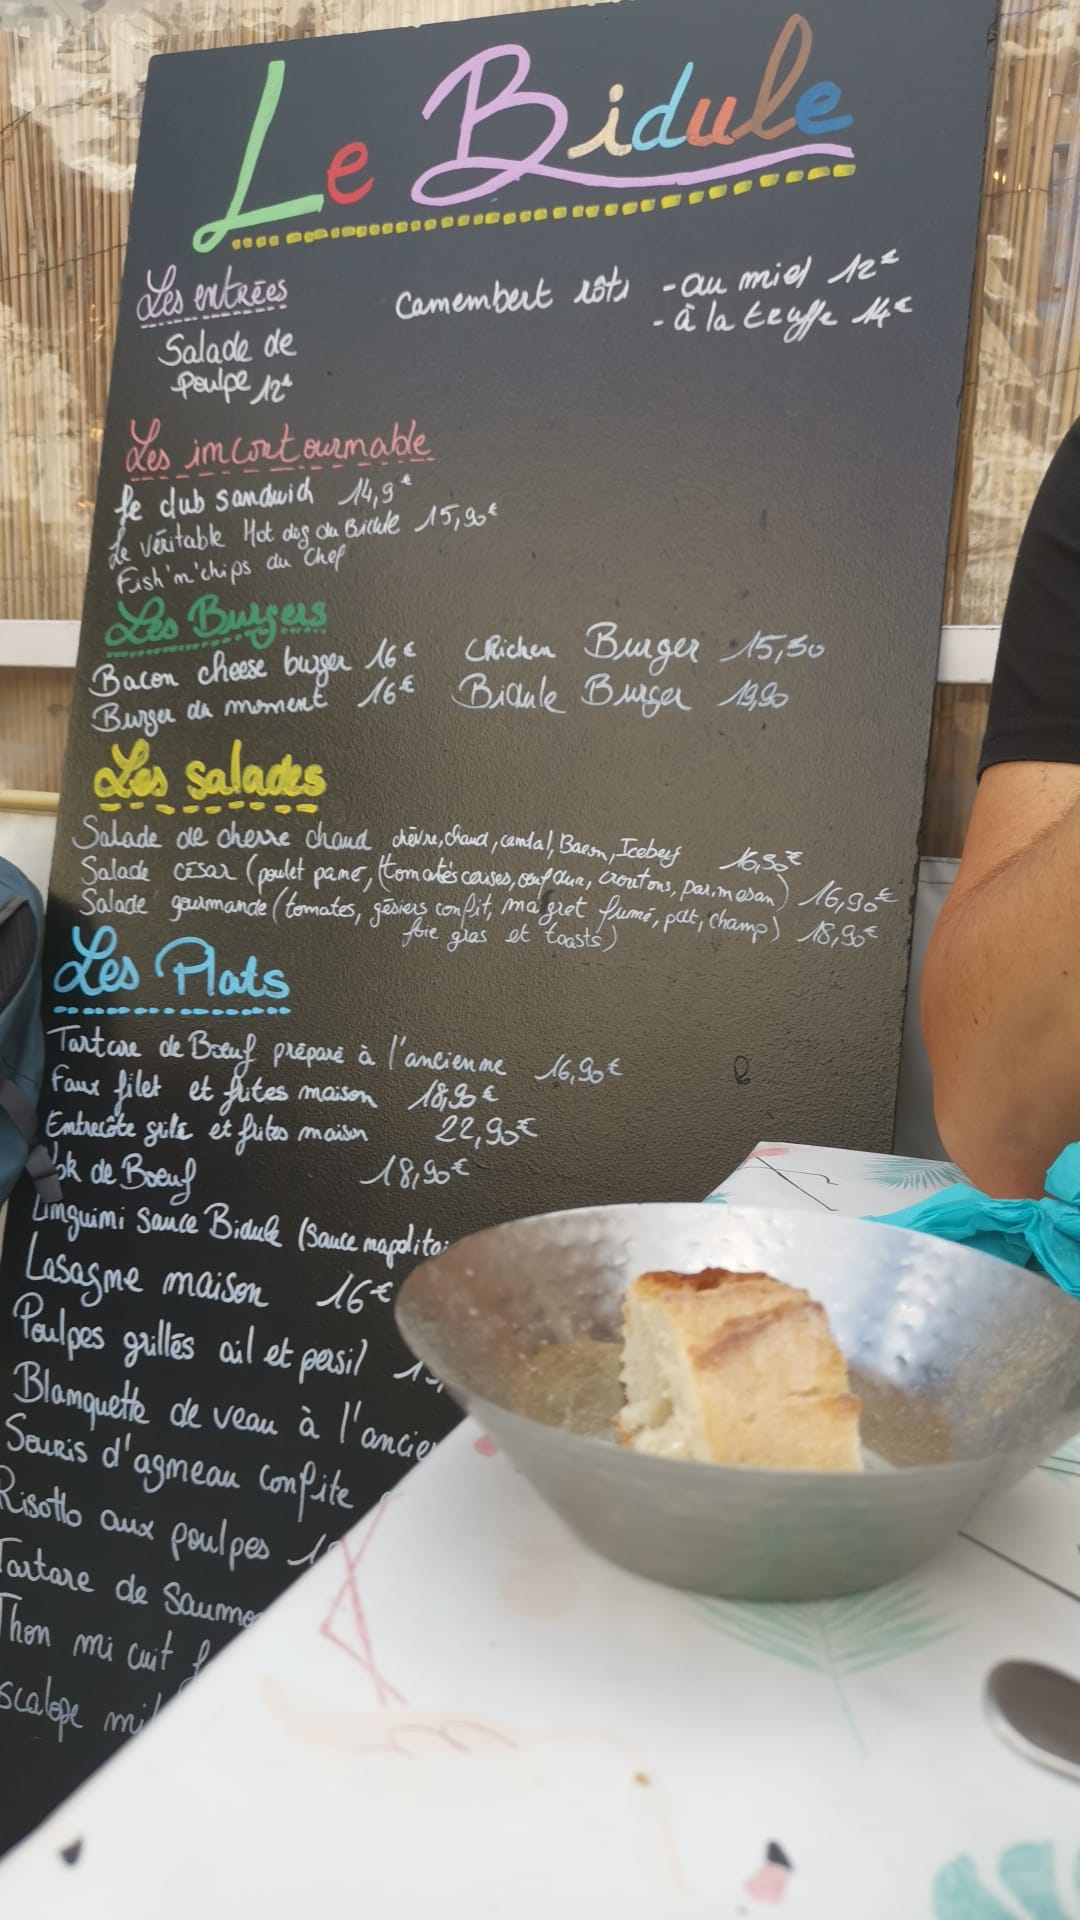 Le Bidule
Les entrées
Camembert rôti - au miel 12€
- à la truffe 14€
Salade de
Poulpe 12€
Les incontournable
Le club sandwich 14,9€
Le véritable Hot dog du Bidule 15,90€
Fish'n'chips du Chef
Les Burgers
Bacon cheese burger 16€ Chicken Burger 15,50
Burger du moment 16€ Bidule Burger 19,90
Les Salades
Salade de chevre chaud chèvre, chaud, cantal, Bacon, Iceberg 16,90€
Salade césar (poulet pané, tomates cerises, oeuf dur, croutons, parmesan) 16,90€
Salade gourmande (tomates, gésiers confit, magret fumé, pdt, champ) 18,90€
foie gras et toasts)
Les Plats
Tartare de Bœuf préparé à l'ancienne 16,90€
Faux filet et frites maison 18,90€
Entrecôte grillé et frites maison 22,90€
ok de Boeuf 18,90€
Linguini Sauce Bidule (Sauce napolitai
Lasagne maison 16€
Poulpes grillés ail et persil
Blanquette de veau à l'ancie
Souris d'agneau confite
Risotto aux poulpes
Tartare de Saumo
Thon mi cuit
scalope mi